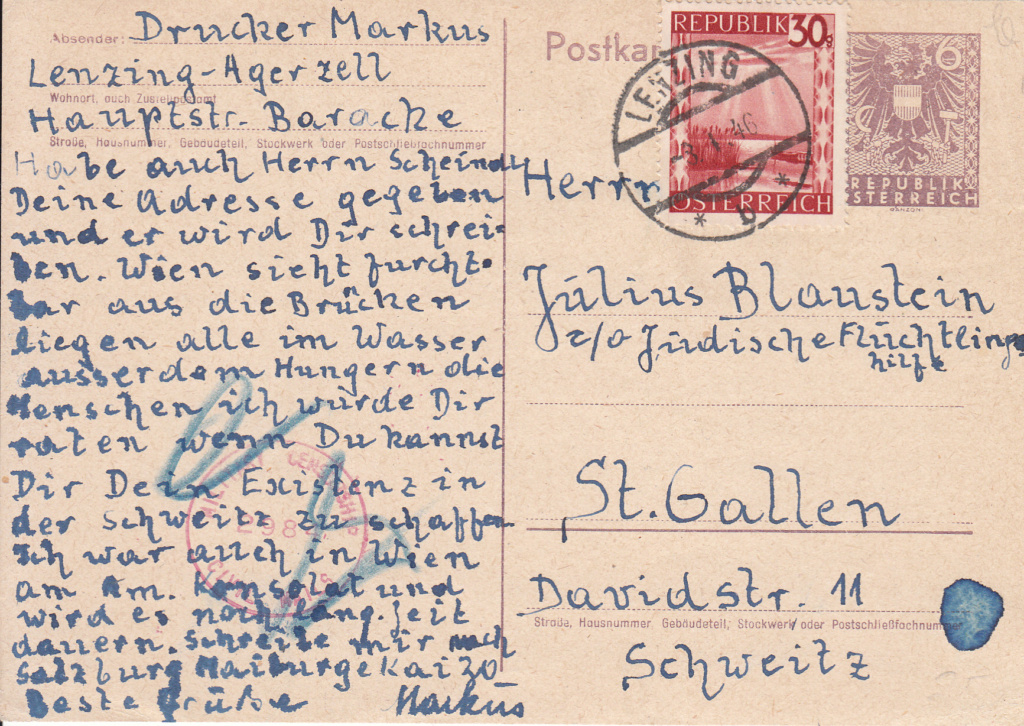 Absender: Drucker Markus
Lenzing-Agerzell
Wohnort, auch Zustellpostamt
Hauptstr. Baracke
Straße, Hausnummer, Gebäudeteil, Stockwerk oder Postschließfachnummer
Habe auch Herrn Scheindl
Deine Adresse gegeben
und er wird Dir schrei-
ben. Wien sieht furcht-
bar aus die Brücken
liegen alle im Wasser
ausserdem Hungern die
Menschen ich würde Dir
raten wenn Du kannst
Dir Dein Existenz in
der Schweitz zu schaffen
Ich war auch in Wien
am Am. Konsolat und
wird es noch lang. Zeit
dauern. Schreibe mir nach
Salzburg Maiburgekai 20
Beste Grüße Markus
Postkar
REPUBLIK 30g
ÖSTERREICH
LENZING
-8. 1. 46
* b *
6
REPUBLIK
ÖSTERREICH
Herrn
Julius Blaustein
c/o Jüdische Flüchtlings
hilfe
St. Gallen
Davidstr. 11
Straße, Hausnummer, Gebäudeteil, Stockwerk oder Postschließfachnummer
Schweitz
298